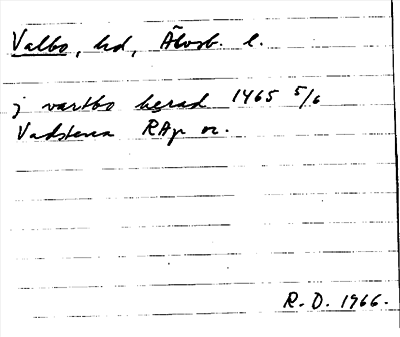 Valbo, hd, Älvsb. l.
j vartbo herad 1465 5/6
Vadstena RAp or.
R. D. 1966.